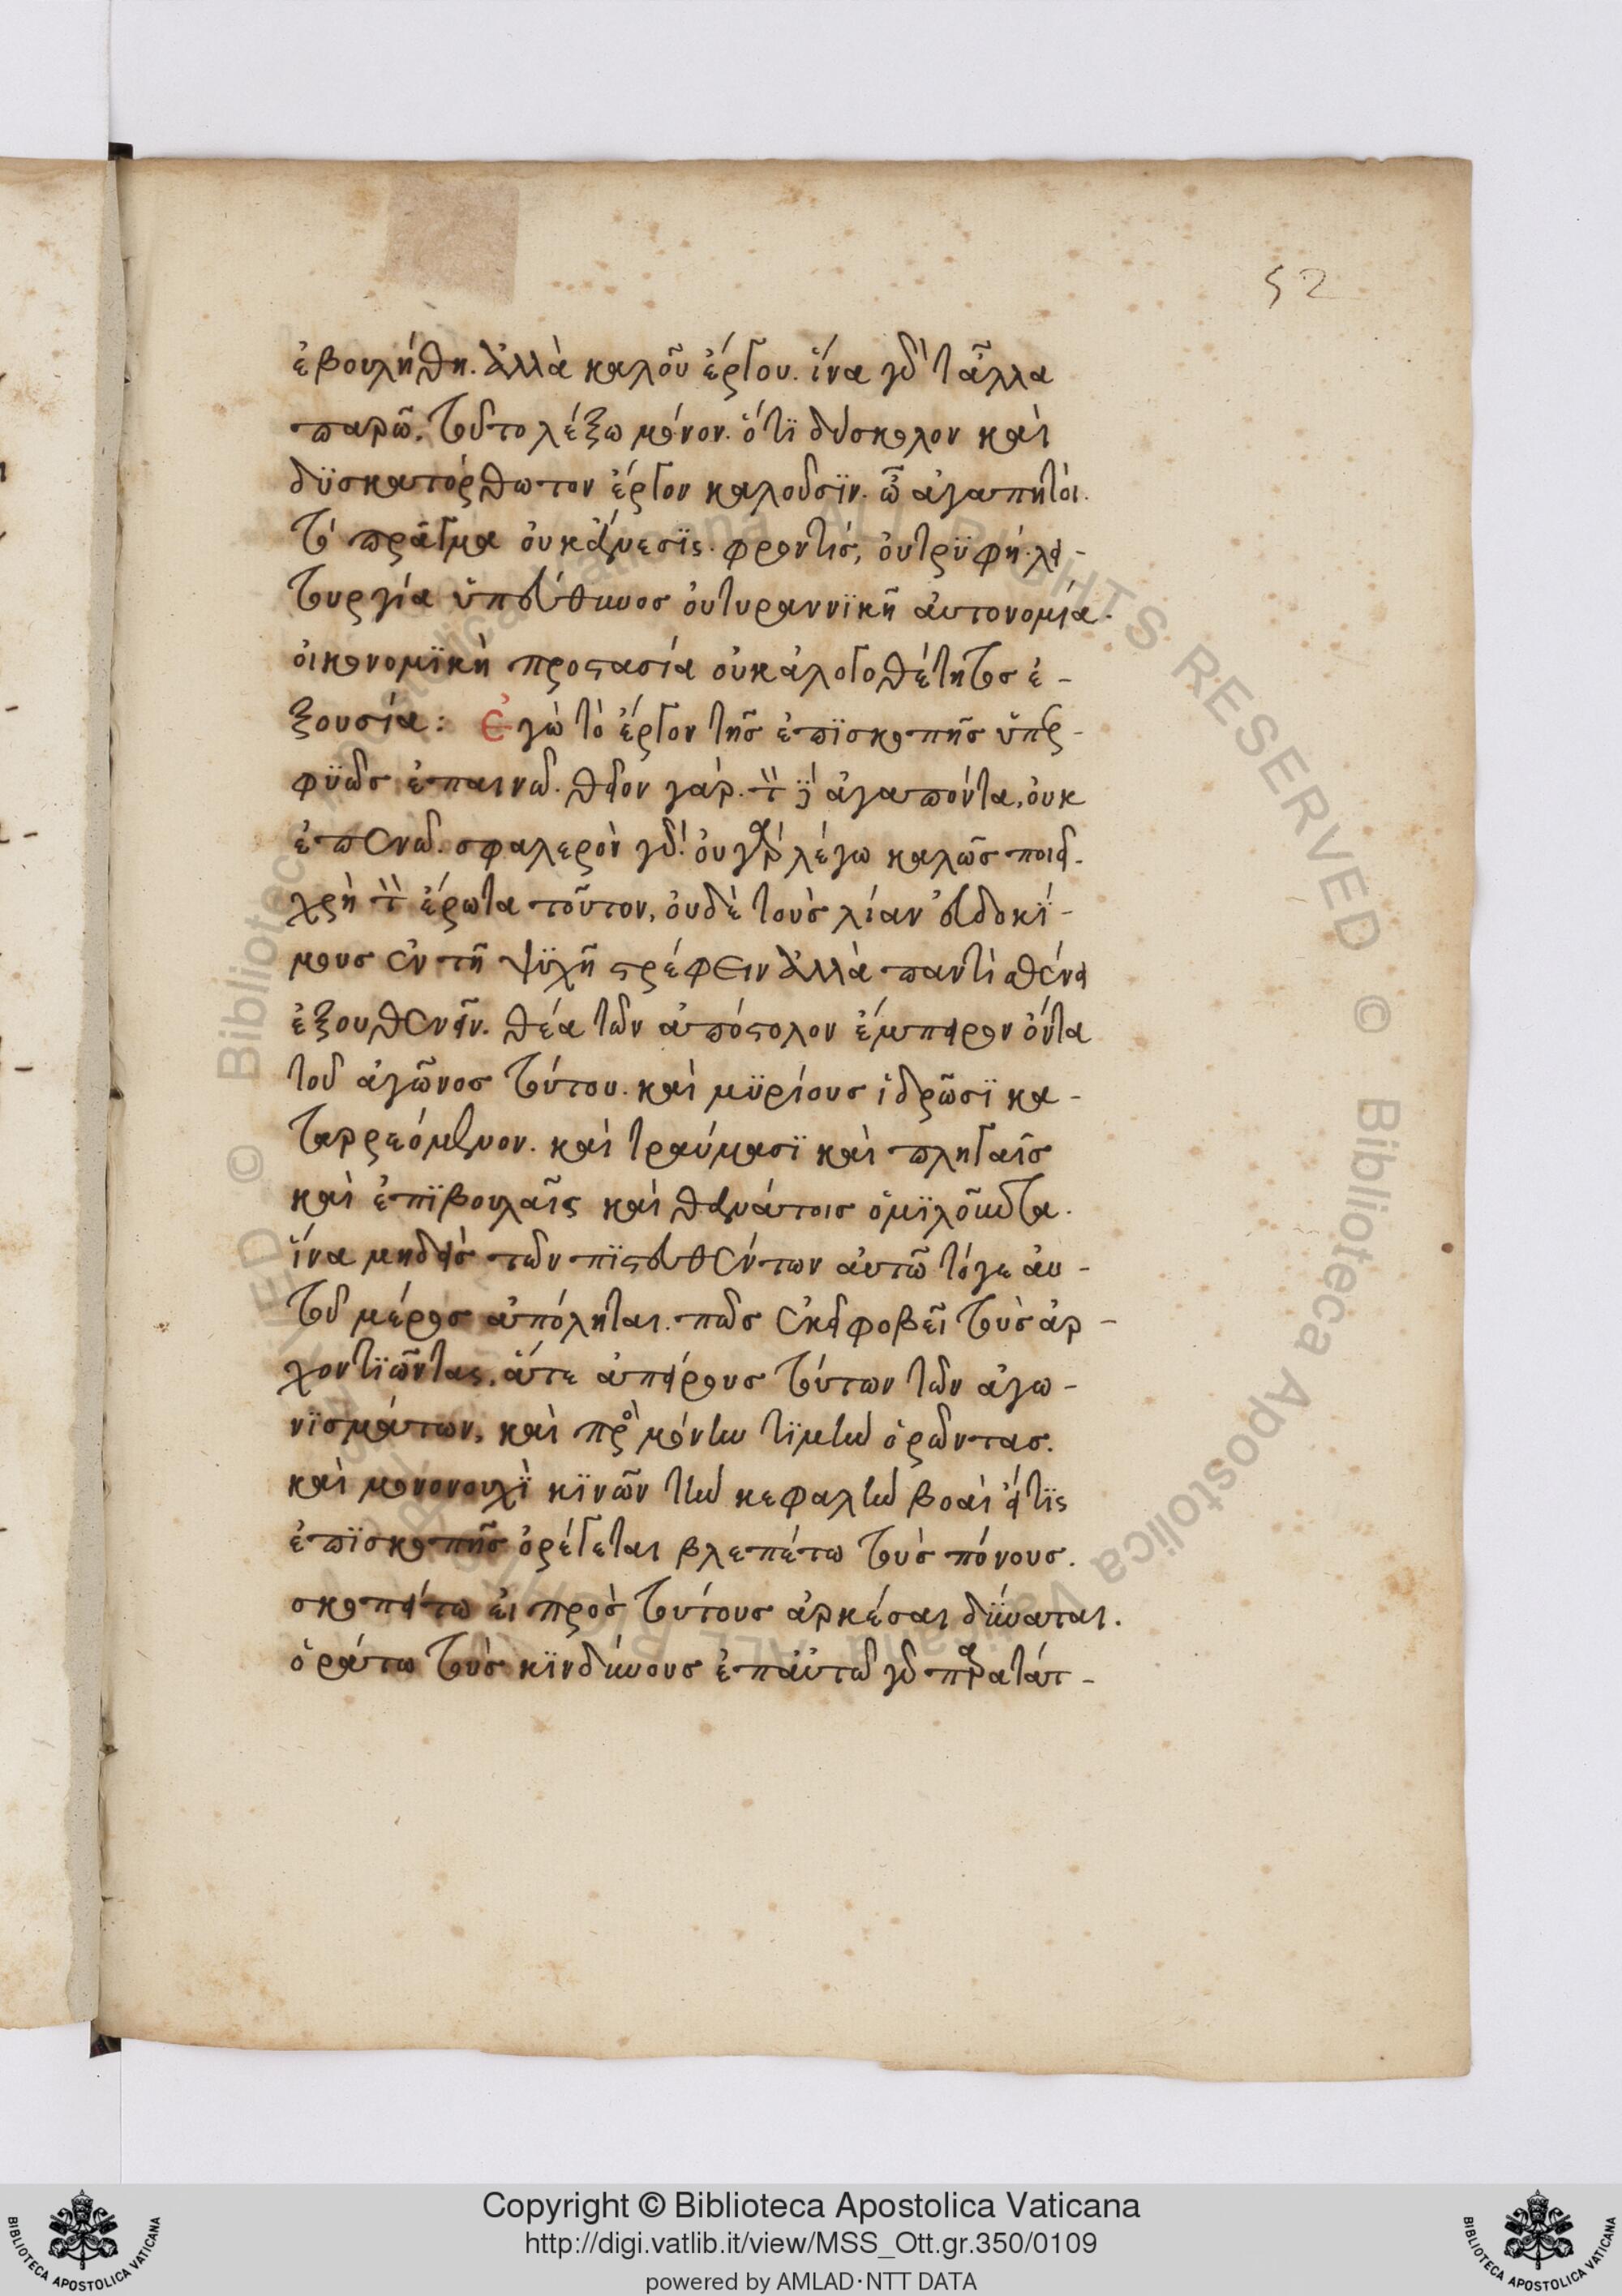 52
ἐβουλήθη. ἀλλὰ καλοῦ ἔργου. ἵνα γὰρ τἆλλα
παρῶ. τοῦτο λέξω μόνον. ὅτϊ δύσκολον καὶ
δϋσκατόρθωτον ἔργον καλοῦσϊν. ὦ ἀγαπητοὶ.
τὸ πρᾶγμα οὐκ ἄνεσϊς. φροντὶς, οὐ τρϋφή. λει-
τουργία ὑπεύθυνος οὐ τυραννϊκὴ αὐτονομία.
οἰκονομϊκὴ προστασία οὐκ ἀλογοθέτητος ἐ-
ξουσία: Ἐγὼ τὸ ἔργον τῆς ἐπϊσκοπῆς ὑπερ-
φϋῶς ἐπαινῶ. θεῖον γάρ. τὸν δὲ ἀγαπῶντα, οὐκ
ἐπαινῶ. σφαλερὸν γάρ. οὐ γὰρ λέγω καλῶς ποιεῖ.
χρὴ τὸν ἔρωτα τοῦτον, οὐδὲ τοὺς λίαν εὐδοκϊ-
μους ἐν τῇ ψϋχῇ στρέφειν ἀλλὰ παντὶ σθένει
ἐξουθενεῖν. θέα τὸν ἀπόστολον ἔμπειρον ὄντα
τοῦ ἀγῶνος τούτου. καὶ μϋρίοις ἱδρῶσϊ κα-
ταρρεόμενον. καὶ τραύμασϊ καὶ πληγαῖς
καὶ ἐπϊβουλαῖς καὶ θανάτοις ὁμϊλοῦντα.
ἵνα μηδεὶς τῶν πϊστευθέντων αὐτῷ τόγε αὐ-
τοῦ μέρος ἀπόληται. πῶς ἐκδειφοβεῖ τοὺς ἀρ-
χοντϊῶντας, ἅτε ἀπείρους τούτων τῶν ἀγω-
νϊσμάτων, καὶ πρὸς μόνην τϊμὴν ὁρῶντας.
καὶ μονονουχὶ κϊνῶν τὴν κεφαλὴν βοᾶι εἴ τϊς
ἐπϊσκοπῆς ὀρέγεται βλεπέτω τοὺς πόνους.
σκοπείτω εἰ πρὸς τούτους ἀρκέσαι δύναται.
ὁράτω τοὺς κϊνδύνους ἐπ' αὐτοῦ γὰρ παρατάτ-
Copyright © Biblioteca Apostolica Vaticana
http://digi.vatlib.it/view/MSS_Ott.gr.350/0109
powered by AMLAD·NTT DATA